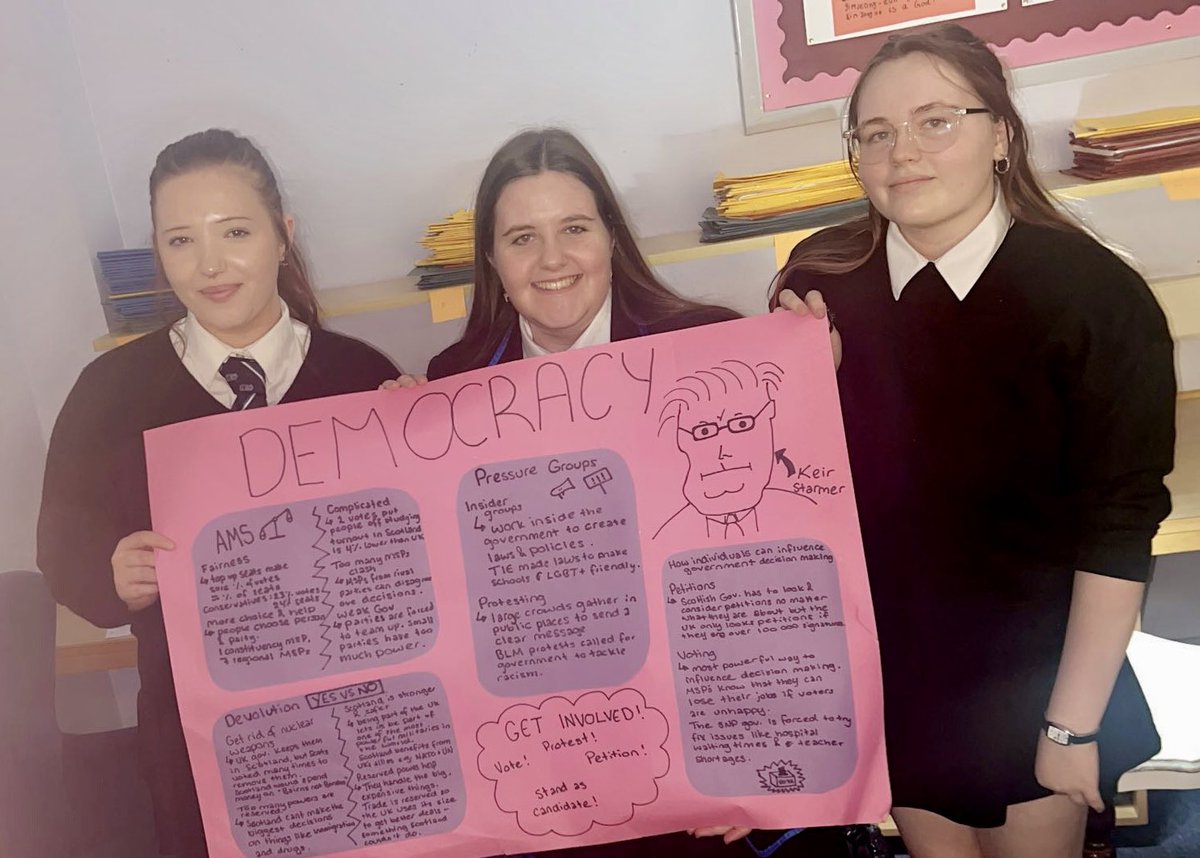 DEMOCRACY
AMS
Fairness
↳ top up seats make
sure % of votes
= % of seats
Conservatives: 23% votes
24% seats
more choice & help
↳ people choose person
& party.
1 constituency MSP,
7 regional MSPs
Complicated
↳ 2 votes put
people off studying
turnout in Scotland
is 4% lower than UK
Too many MSPs
clash
↳ MSPs from rival
parties can disagree
over decisions.
Weak Gov
↳ parties are forced
to team up. Small
parties have too
much power.
Pressure Groups
Insider
groups
↳ work inside the
government to create
laws & policies.
TIE made laws to make
schools LGBT+ friendly.
Protesting
↳ large crowds gather in
public places to send a
clear message
BLM protests called for
government to tackle
racism.
Keir
Starmer
How individuals can influence
government decision making
Petitions
↳ Scottish Gov. has to look &
consider petitions no matter
what they are about but the
UK only looks petitions if
they are over 100 000 signature
Voting
↳ most powerful way to
influence decision making.
MSPs know that they can
lose their jobs if voters
are unhappy.
The SNP gov. is forced to try
fix issues like hospital
waiting times & teacher
shortages.
Devolution YES VS NO
Get rid of nuclear
weapons
↳ UK gov. keeps them
in Scotland, but Scots
voted many times to
remove them
Scotland would spend
money on "Bairns not Bombs
Too many powers are
reserved
↳ Scotland cant make the
biggest decisions
on things like immigration
and drugs.
Scotland is stronger
& safer
↳ being part of the UK
lets it be part of
one of the most
powerful militaries in
the world.
Scotland benefits from
UKs allies eg NATO & UN
Reserved powers help
↳ They handle the big,
expensive things.
Trade is reserved so
the UK uses its size
to get better deals -
something Scotland
couldn't do.
GET INVOLVED!
Protest!
Vote! Petition!
Stand as
candidate!
is a God!